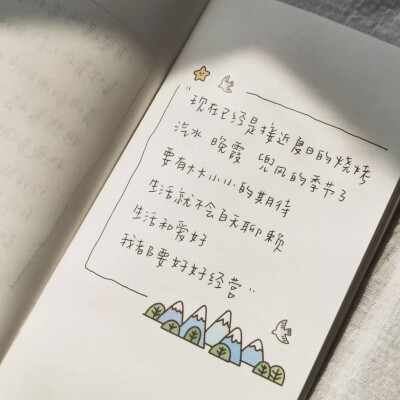 "现在已经是接近夏日的烧烤
汽水 晚霞 兜风的季节了
要有大大小小的期待
生活就不会白天聊赖
生活和爱好
我都要好好经营"